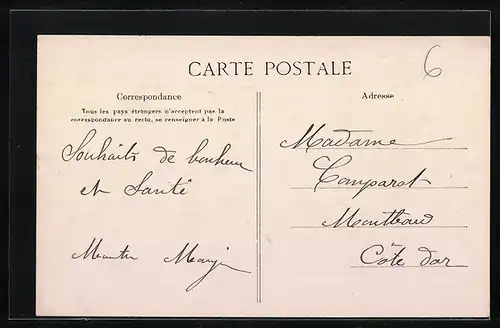 6
CARTE POSTALE
Correspondance
Tous les pays étrangers n'acceptent pas la
correspondance au recto, se renseigner à la Poste
Souhaits de bonheur
et Santé
Adresse
Madame
Comparot
Côte d'or